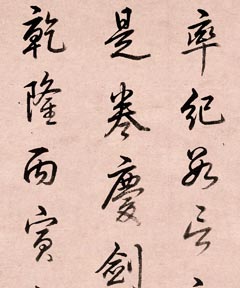 率紀數言
是卷慶劍
乾隆丙寅